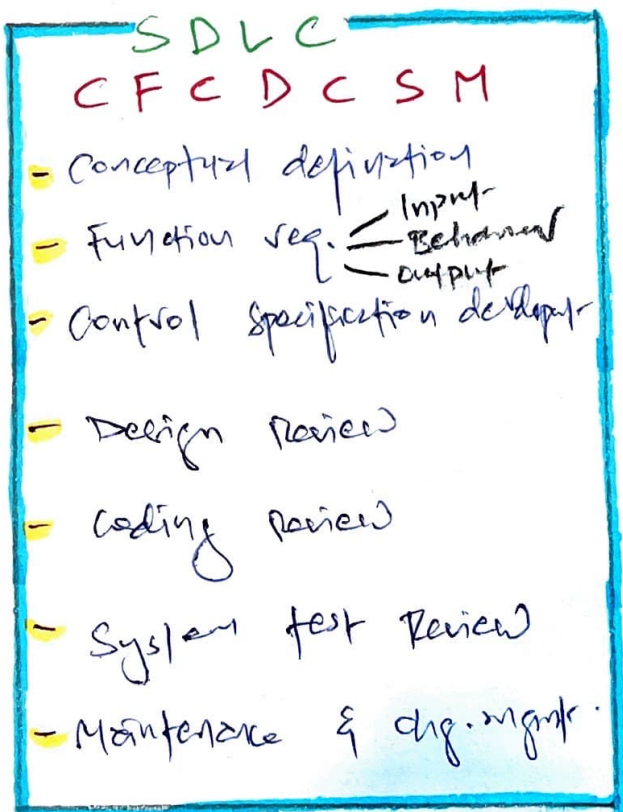 SDLC
CFCDCSM
- Conceptual definition
- Function req. Input
Behaviour
Output
- Control specification develop
- Design Review
- Coding Review
- System test Review
- Maintenance & chg. mgmt.